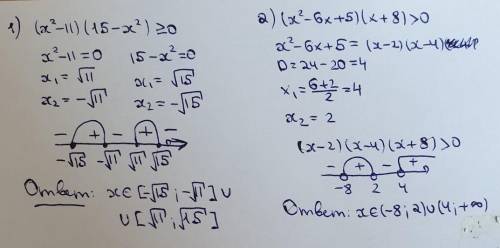 1) (x²-11)(15-x²)≥0
x²-11=0   15-x²=0
x₁=√11   x₁=√15
x₂=-√11   x₂=-√15
- + - + -
-√15 -√11 √11 √15
Ответ: x∈[-√15;-√11]∪
∪[√11;√15]
2) (x²-6x+5)(x+8)>0
x²-6x+5=(x-2)(x-4)
D=24-20=4
x₁=6+2/2=4
x₂=2
(x-2)(x-4)(x+8)>0
- + - +
-8 2 4
Ответ: x∈(-8;2)∪(4;+∞)